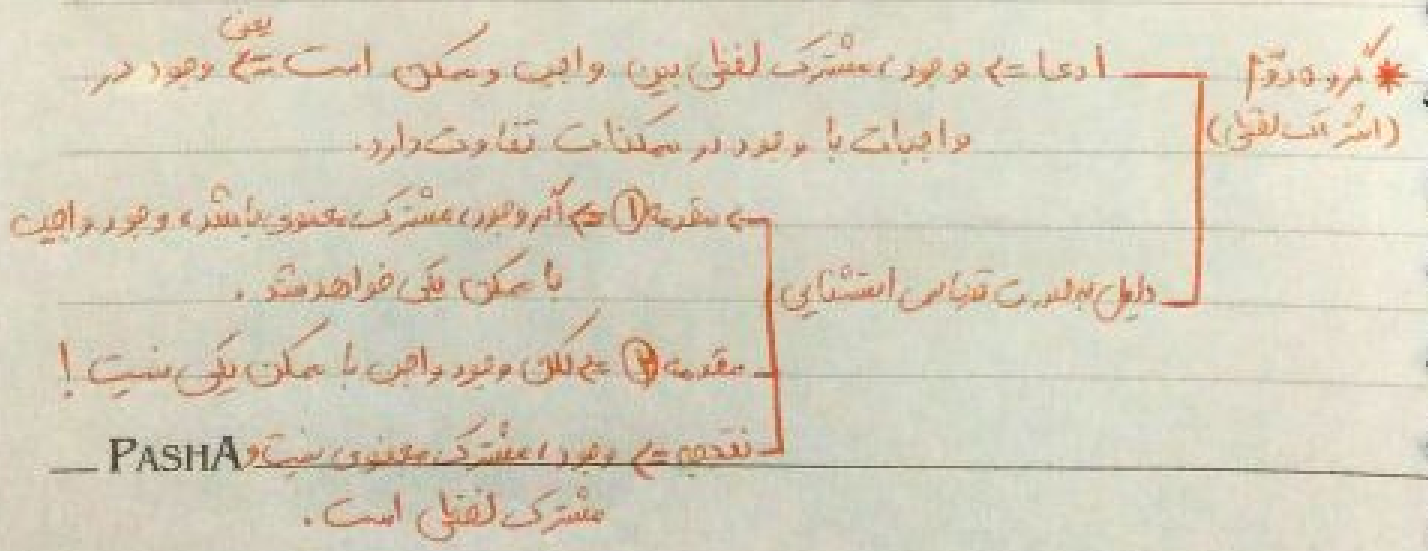 * گروه دوم
(اشتراک لفظی)
ادعا => وجود، مشترک لفظی بین واجب و ممکن است => یعنی وجود در
واجبات با وجود در ممکنات تفاوت دارد.
دلیل به صورت قیاس استثنایی
مقدمه ① => اگر وجود، مشترک معنوی باشد، وجود واجب
با ممکن یکی خواهد شد.
مقدمه ② => لکن وجود واجب با ممکن یکی نیست!
نتیجه => وجود، مشترک معنوی نیست و
مشترک لفظی است.
PASHA